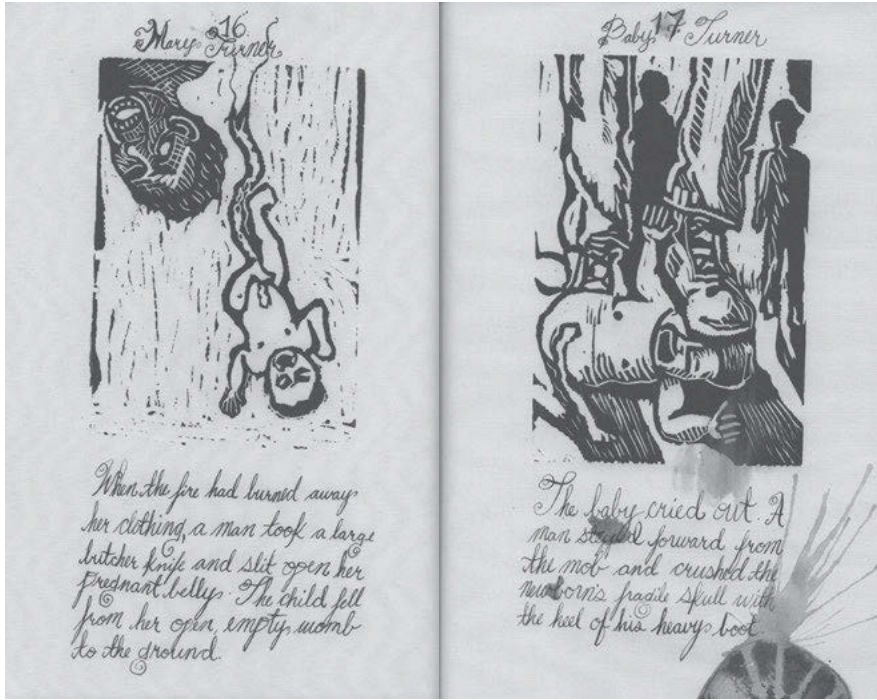 16
Mary Turner
When the fire had burned away
her clothing, a man took a large
butcher knife and slit open her
pregnant belly. The child fell
from her open, empty womb
to the ground.
17
Baby Turner
The baby cried out. A
man stepped forward from
the mob and crushed the
newborn's fragile skull with
the heel of his heavy boot.